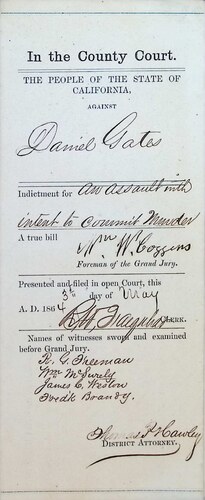 In the County Court.
THE PEOPLE OF THE STATE OF
CALIFORNIA,
AGAINST
Daniel Gates
Indictment for an assault with
intent to commit Murder
A true bill
Wm McCoggins
Foreman of the Grand Jury.
Presented and filed in open Court, this
5th day of May
A. D. 1864
CLERK.
Names of witnesses sworn and examined
before Grand Jury.
R. G. Freeman
Wm McSurely
James C. Weston
Fredk Brandy.
Thomas P. Hawley
DISTRICT ATTORNEY.